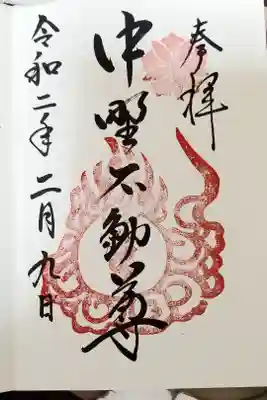 奉拝
中野不動尊
令和二年二月九日